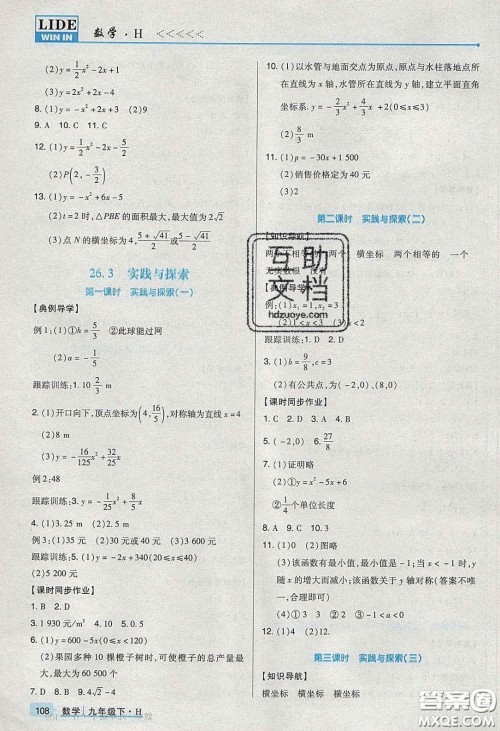 LIDE
WIN IN
数学·H <<<<<
(2)y=1/2x²-2x+1
(3)y=2x²+2x-4
8.(1)y=-x²+2x+3 (2)9
9. A 10. C 11. C
12.(1)y=1/2x²-2x-5/2
13.(1)y=-x²+6x-5
(2)t=2时,△PBE的面积最大,最大值为2√2
(3)点N的横坐标为4,(5+√41)/2或(5-√41)/2
26.3 实践与探索
第一课时 实践与探索(一)
【典例导学】
例1:(1)①h=5/3 ②此球能过网
(2)a=-1/5
跟踪训练:1. 10 2. 2/3 m
3.(1)开口向下,顶点坐标为(4,16/5),对称轴为直线x=4
(2)8 m
(3)y=-16/125x²+32/25x
例2:48
跟踪训练:
4.(1)3.25 m (2)2.5 m
例3:(1)35元 (2)30元或40元 (3)3 600元
跟踪训练:5. 10
【课时同步作业】
1. B 2. D
3. 1 930元/m² 4. 4√2 m 5. D
6.(1)y=600-5x(0≤x<120)
(2)果园多种10棵橙子树时,可使橙子的总产量最大,最大为60 500个
7. B 8. D 9. A
10.(1)以水管与地面交点为原点,原点与水柱落地点所在直线为x轴,水管所在直线为y轴,建立平面直角坐标系. y=-2/3x²+4/3x+2(0≤x≤3)
(2)8/3 m
11.(1)p=-30x+1 500
(2)销售价格定为40元
(3)2
第二课时 实践与探索(二)
【知识导航】
横坐标 两个相等的 一个
无实数根 没有
【典例导学】
(2)1<x<3 (3)x>2
跟踪训练:1. D 2. D
3.(1)b=9/8,c=3
(2)有公共点,为(-2,0),(8,0)
【课时同步作业】
1. C 2. D 3. A 4. B
5.(-2,0) 6. 27/8
7.(1)证明略
(2)①y=x²-5x+6
②1/4个单位长度
8. A 9. C 10. 3
11.(1)0 (2)图略
(3)该函数有最小值,最小值为-1;当x>1时,y随x的增大而减小;该函数关于y轴对称(答案不唯一,合理即可)
(4)①3 3 ②2 ③-1<a<0
12.(1)4 (2)D
第三课时 实践与探索(三)
【知识导航】
横坐标 横坐标 横坐标
108 数学 九年级下·H
互助
文档
hdzuoye.com
答案圈
MXQE.COM